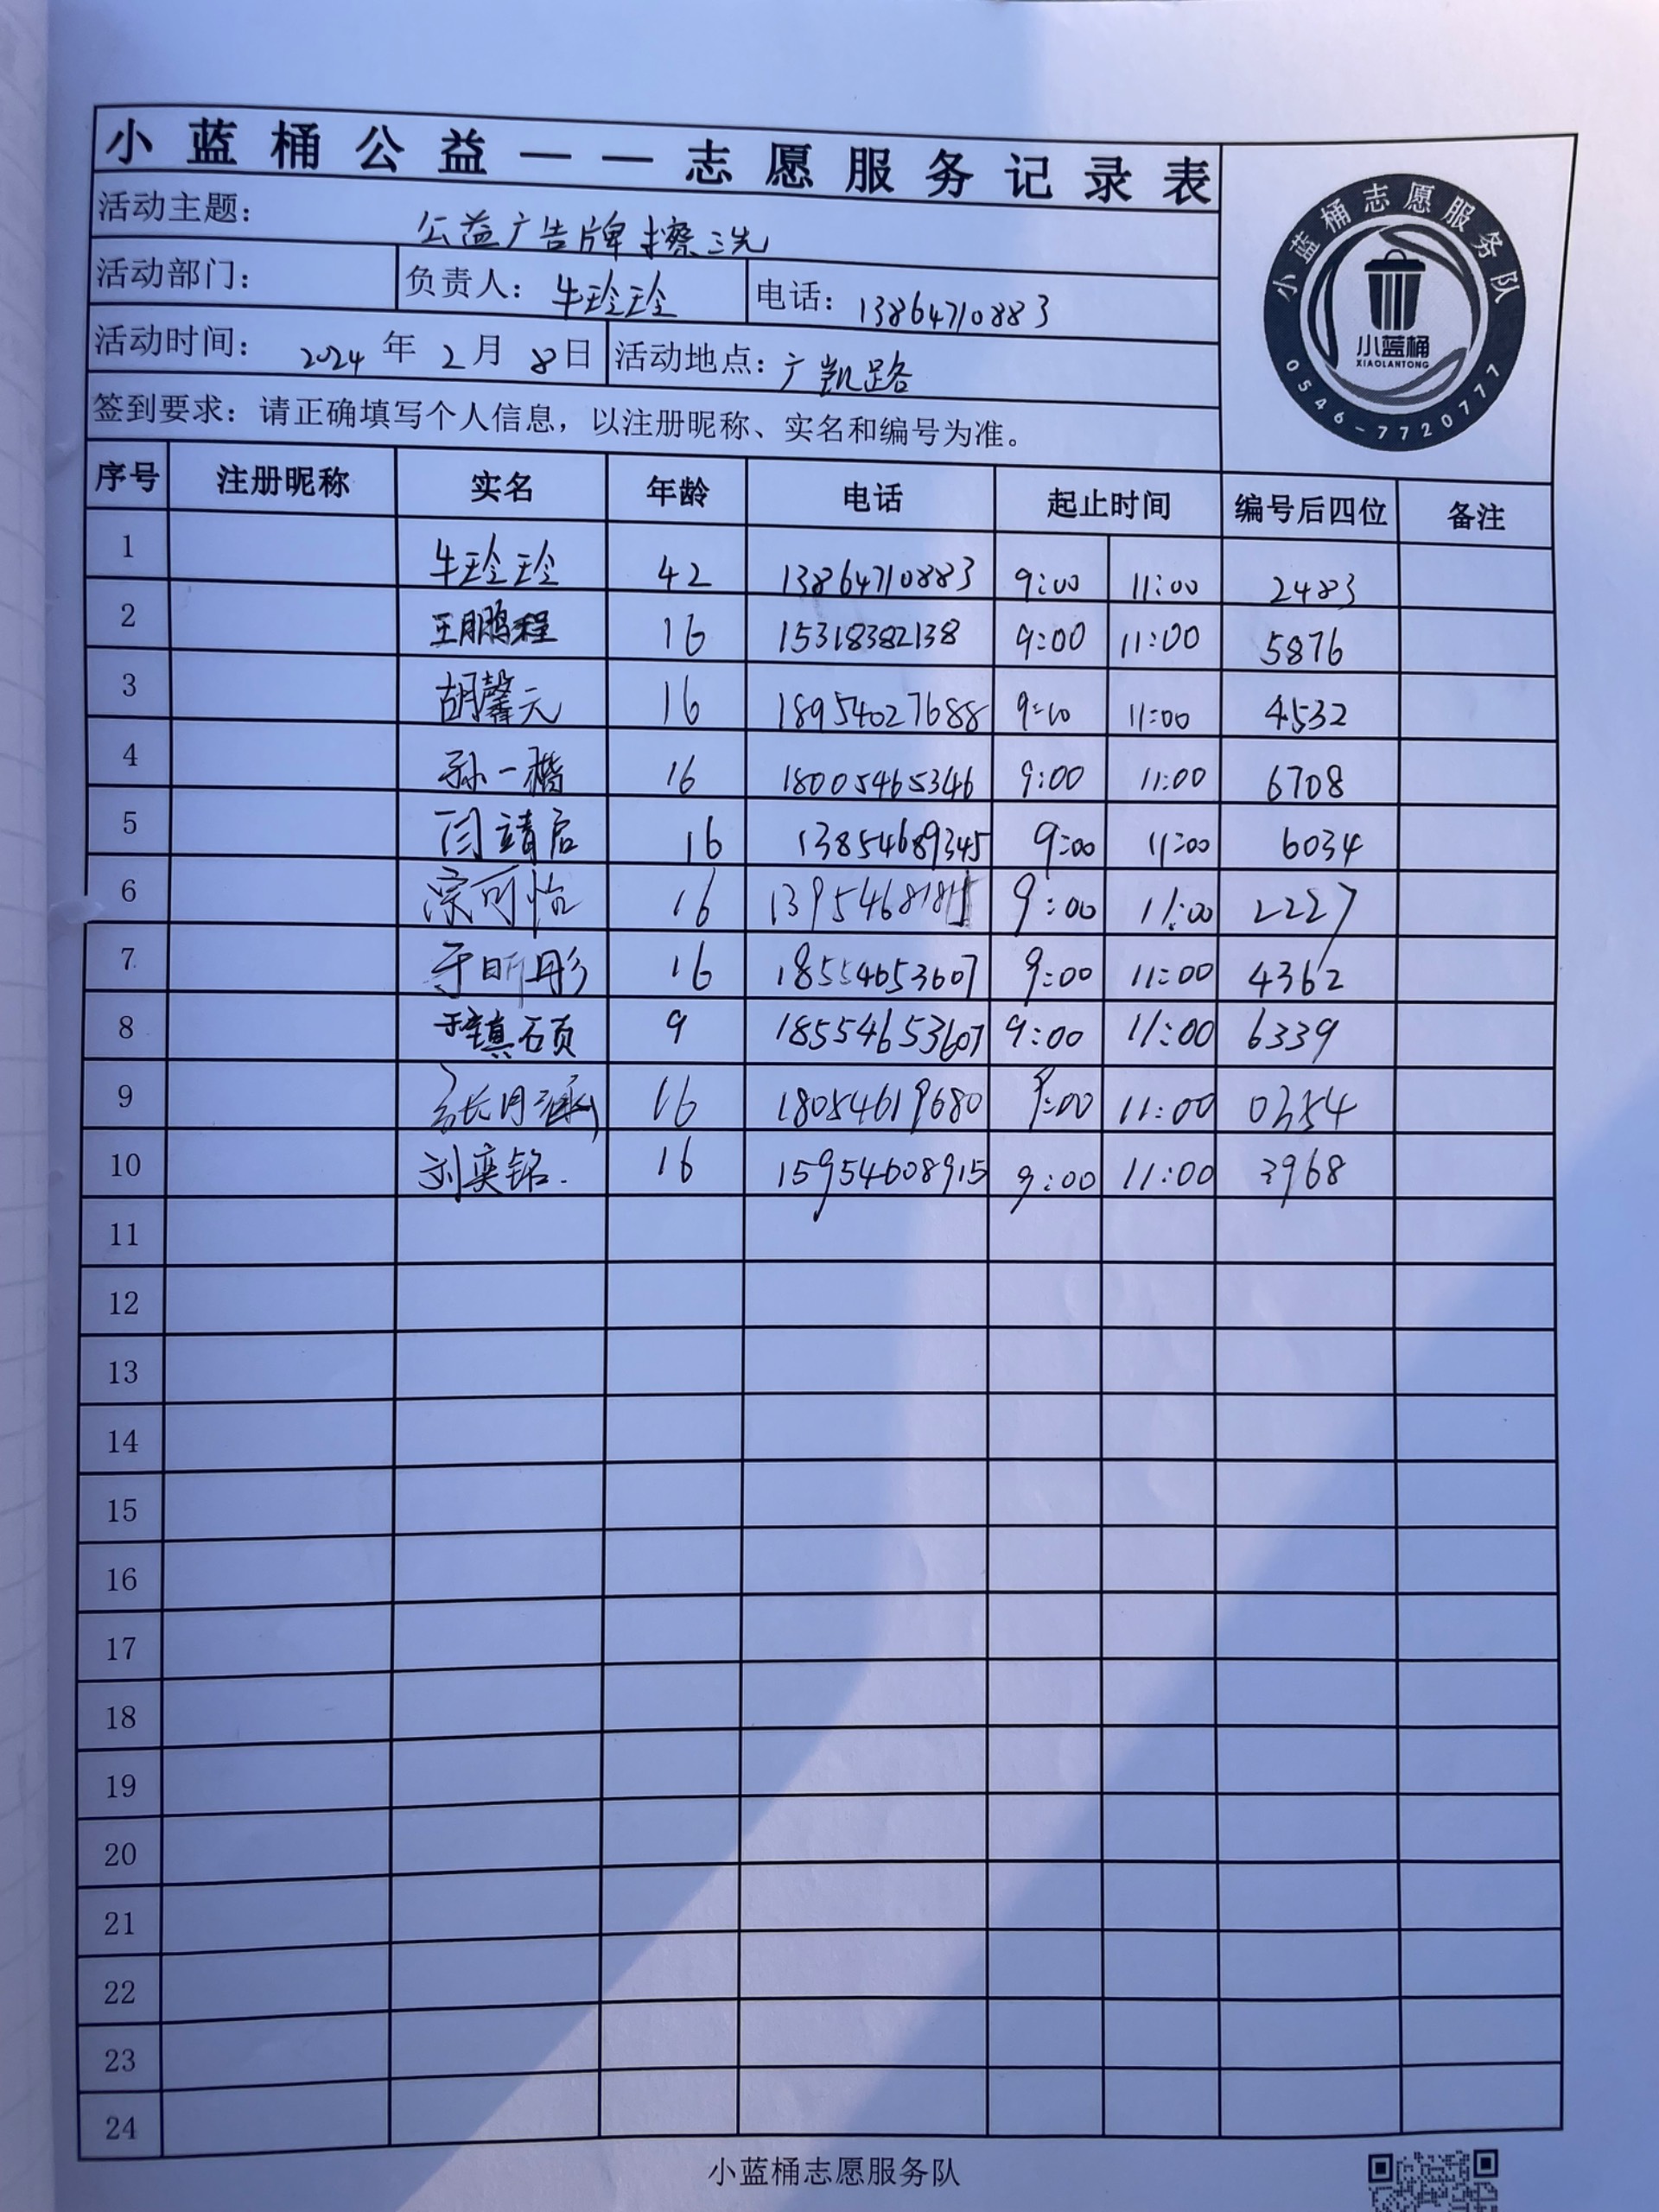 小蓝桶公益——志愿服务记录表
活动主题: 公益广告牌擦洗
活动部门: 负责人: 牛玲玲 电话: 13864710883
活动时间: 2024 年 2 月 8 日 活动地点: 广凯路
签到要求: 请正确填写个人信息, 以注册昵称、实名和编号为准。
小蓝桶志愿服务队
小蓝桶
XIAOLANTONG
0546-7720777
序号 注册昵称 实名 年龄 电话 起止时间 编号后四位 备注
1 牛玲玲 42 13864710883 9:00 11:00 2483
2 王鹏程 16 15318382138 9:00 11:00 5876
3 胡馨元 16 18954027688 9:10 11:00 4532
4 孙一楷 16 18005465346 9:00 11:00 6708
5 闫靖启 16 13854689345 9:00 11:00 6034
6 宗可怡 16 9:00 11:00 2227
7 于昕彤 16 18554653607 9:00 11:00 4362
8 于镇硕 9 18554653607 9:00 11:00 6339
9 张月涵 16 18054619680 9:00 11:00 0354
10 刘奕铭. 16 15954608915 9:00 11:00 3968
11
12
13
14
15
16
17
18
19
20
21
22
23
24
小蓝桶志愿服务队